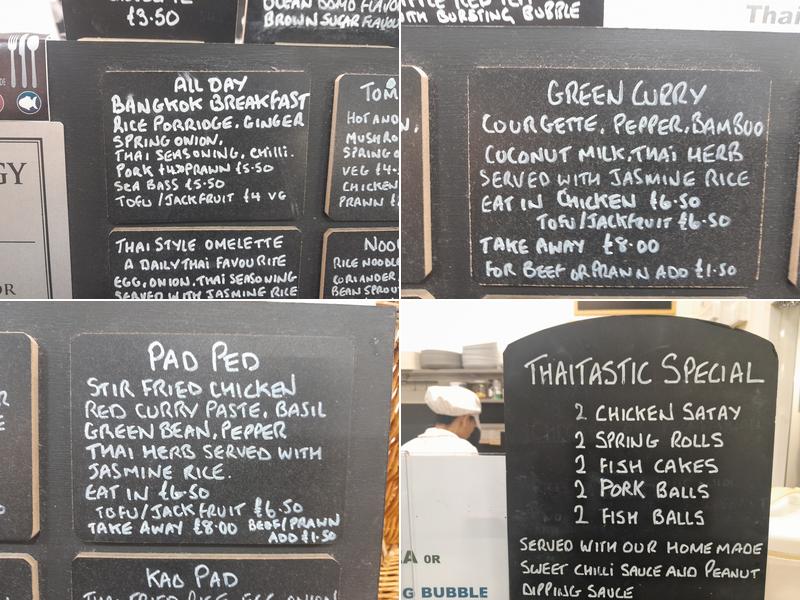 £3.50
BROWN SUGAR FLAVOU
ALL DAY
BANGKOK BREAKFAST
RICE PORRIDGE, GINGER
SPRING ONION,
THAI SEASONING, CHILLI.
PORK £4.50 PRAWN £5.50
SEA BASS £5.50
TOFU/JACKFRUIT £4 VG
TOM
HOT AND
MUSHRO
SPRING O
VEG £4.
CHICKEN
PRAWN £
GY
OR
THAI STYLE OMELETTE
A DAILY THAI FAVOURITE
EGG, ONION, THAI SEASONING
SERVED WITH JASMINE RICE
NOO
RICE NOODL
CORIANDER
BEAN SPROU
WITH BURSTING BUBBLE
Thai
GREEN CURRY
COURGETTE, PEPPER, BAMBUO
COCONUT MILK, THAI HERB
SERVED WITH JASMINE RICE
EAT IN CHICKEN £6.50
TOFU/JACKFRUIT £6.50
TAKE AWAY £8.00
FOR BEEF OR PRAWN ADD £1.50
PAD PED
STIR FRIED CHICKEN
RED CURRY PASTE, BASIL
GREEN BEAN, PEPPER
THAI HERB SERVED WITH
JASMINE RICE.
EAT IN £6.50
TOFU/JACKFRUIT £6.50
TAKE AWAY £8.00 BEEF/PRAWN
ADD £1.50
KAO PAD
THAI FRIED RICE, EGG, ONION
THAITASTIC SPECIAL
2 CHICKEN SATAY
2 SPRING ROLLS
2 FISH CAKES
2 PORK BALLS
2 FISH BALLS
SERVED WITH OUR HOMEMADE
SWEET CHILLI SAUCE AND PEANUT
DIPPING SAUCE
A OR
G BUBBLE